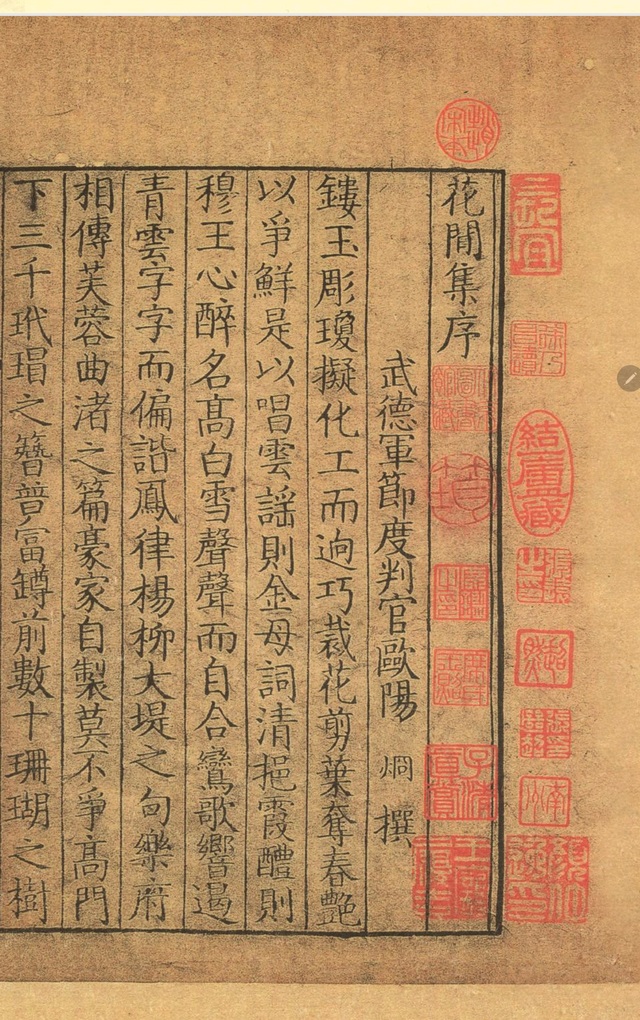 花閒集序
武德軍節度判官歐陽 烱 撰
鏤玉彫瓊擬化工而逈巧裁花剪葉奪春艷
以爭鮮是以唱雲謡則金母詞清挹霞醴則
穆王心醉名髙白雪聲聲而自合鸞歌響遏
青雲字字而偏諧鳳律楊栁大堤之句樂府
相傳芙蓉曲渚之篇豪家自製莫不爭髙門
下三千玳瑁之簪普富罇前數十珊瑚之樹
結廬藏
宋本